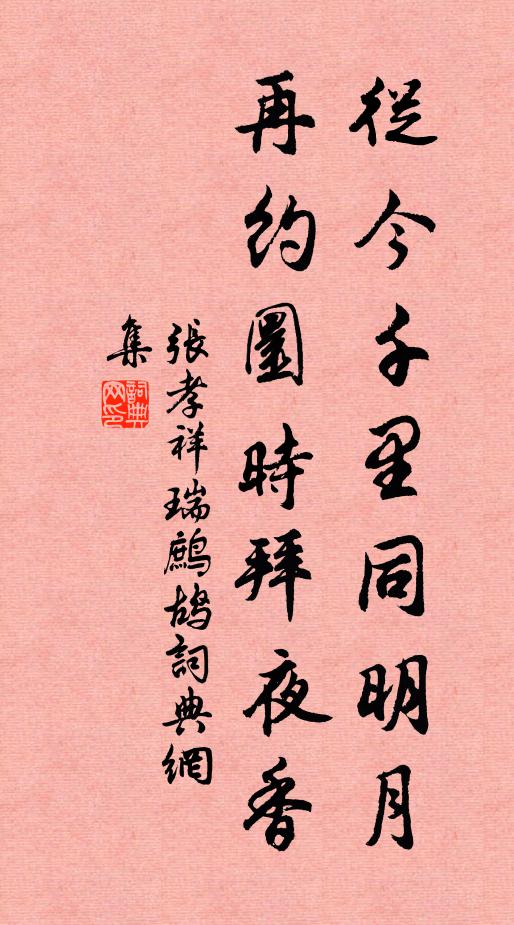 從今千里同明月
再約圓時拜夜香
張孝祥瑞鷓鴣詞典網
集
詞典網印